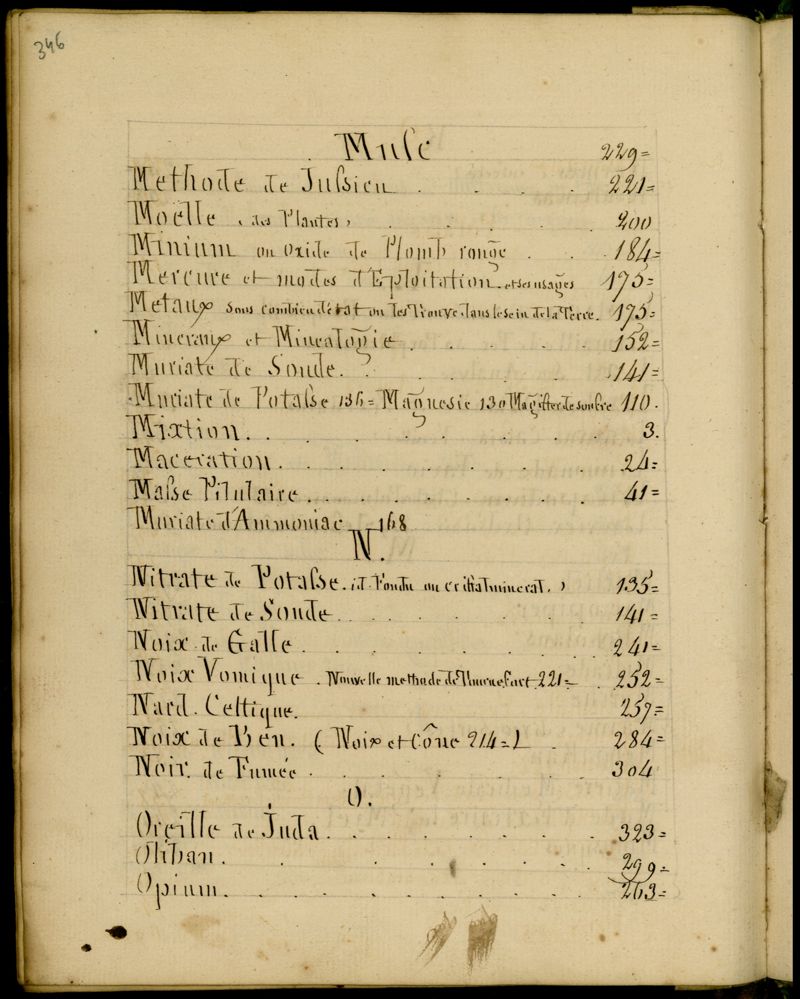 346
Musc 229=
Methode de Jussieu . . . . 221=
Moëlle (des Plantes) . . . . 200
Minium ou oxide de Plomb rouge . . 184=
Mercure et modes d'Exploitation. et ses usages 175=
Metaux sous combien d'état on les trouve dans le sein de la Terre. 175=
Mineraux et Mineralogie . . . . . 152=
Muriate de Soude. . . . . . 141=
Muriate de Potasse 136= Magnesie 130 Magister de soufre 110.
Mixtion. . . . . . . . 3.
Maceration . . . . . . . 24=
Masse Pilulaire . . . . . . . . 41=
Muriate d'Ammoniac 168
N.
Nitrate de Potasse. id. Fondu ou cristal mineral. ) 135=
Nitrate de Soude. . . . . . . . 141=
Noix de Galle . . . . . . . . 241=
Noix Vomique . Nouvelle methode de 221= . 252=
Nard. Celtique. 257=
Noix de Ben. ( Noix et Cône 214= . 284=
Noir. de Fumée . . . . . . . 304
O.
Oreille de Juda . . . . . . . . 323=
Oliban . . . . . . . 299=
Opium . . . . . . . . . 263=